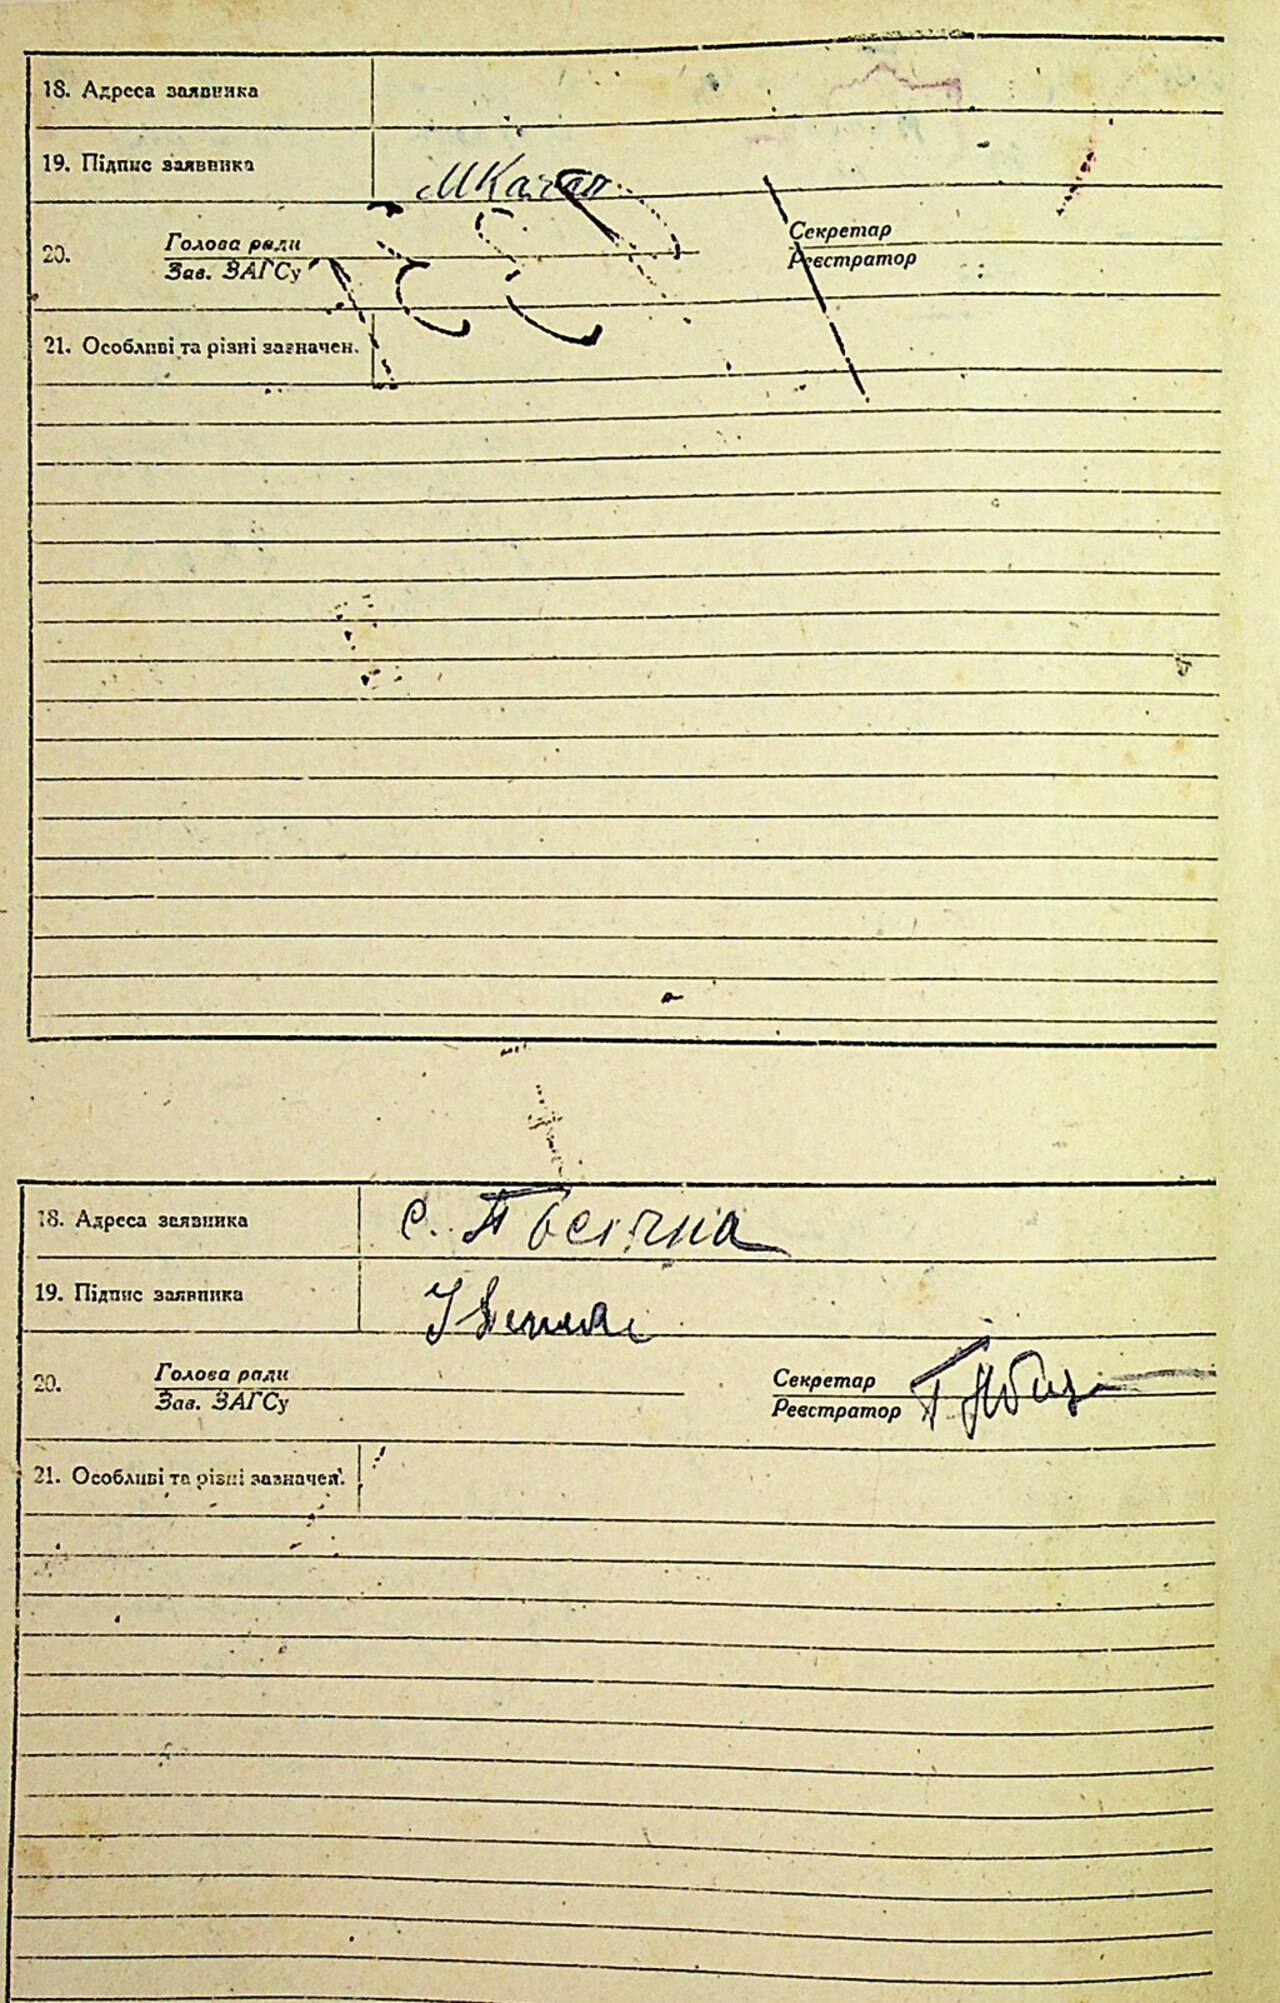 18. Адреса заявника
19. Підпис заявника
МКачан
20. Голова ради
Зав. ЗАГСу
Секретар
Реєстратор
21. Особливі та різні зазначен.
18. Адреса заявника
с.
19. Підпис заявника
20. Голова ради
Зав. ЗАГСу
Секретар
Реєстратор
21. Особливі та різні зазначен.